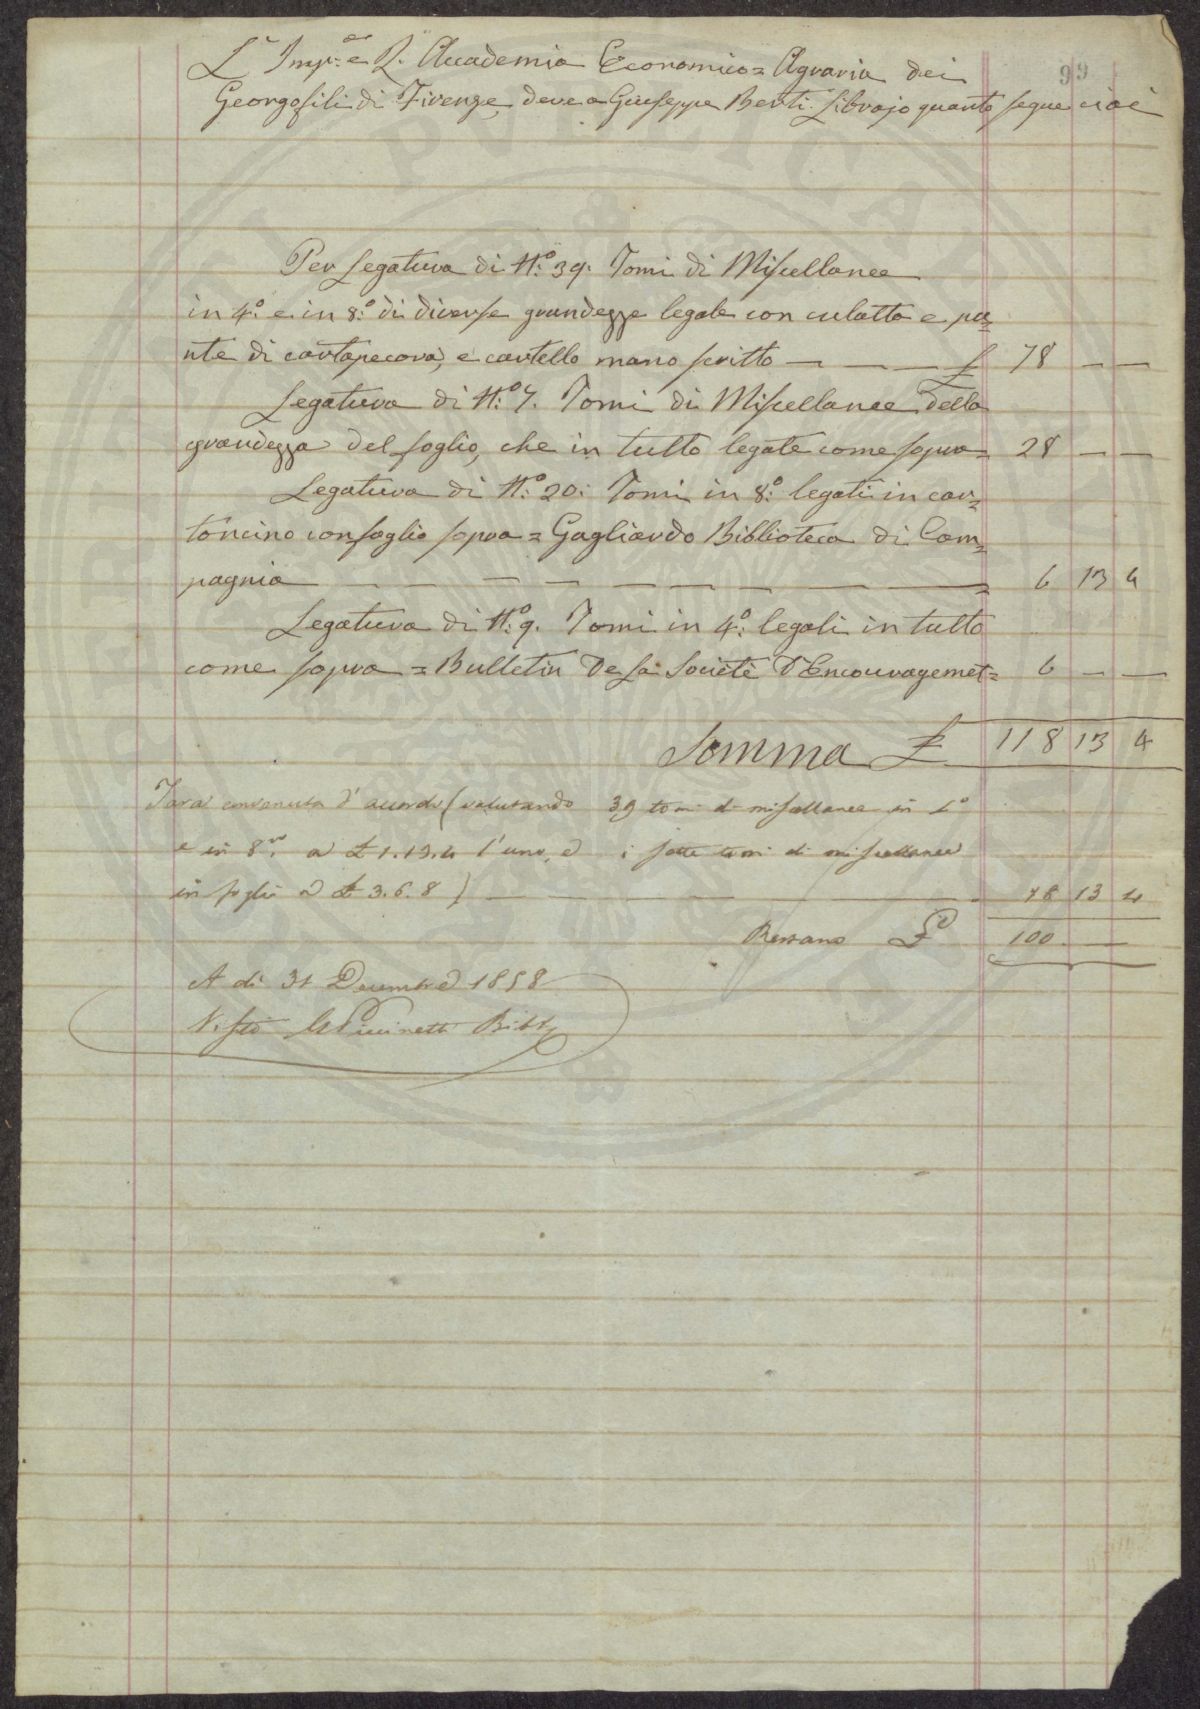 99
L' Imp.e e R. Accademia Economico= Agraria dei
Georgofili di Firenze, deve a Giuseppe Berti Librajo quanto segue cioè
Per Legatura di N.o 39. Tomi di Miscellanee
in 4.o e in 8.o di diverse grandezze legate con culatta e pu=
nte di cartapecora, e cartello mano scritto — — — — £ 78 — —
Legatura di N.o 7. Tomi di Miscellanee della
grandezza del foglio, che in tutto legate come sopra= 28 — —
Legatura di N.o 20: Tomi in 8.o legati in car=
toncino con foglio sopra = Gagliardo Biblioteca di Cam=
pagnia — — — — — — — — = 6 13 4
Legatura di N.o 9. Tomi in 4.o legati in tutto
come sopra = Bulletin De La Societè D'Encouragemet= 6 — —
Somma £ 118 13 4
Tara convenuta d'accordo (valutando 39 tomi di miscellanee in 4o
e in 8vo a £ 1.13.4 l'uno, e i sette tomi di miscellanee
in foglio a £ 3.6.8) — — — — 18 13 4
Restano £ 100 —
A dì 31 Decembre 1858
Visto Bibl